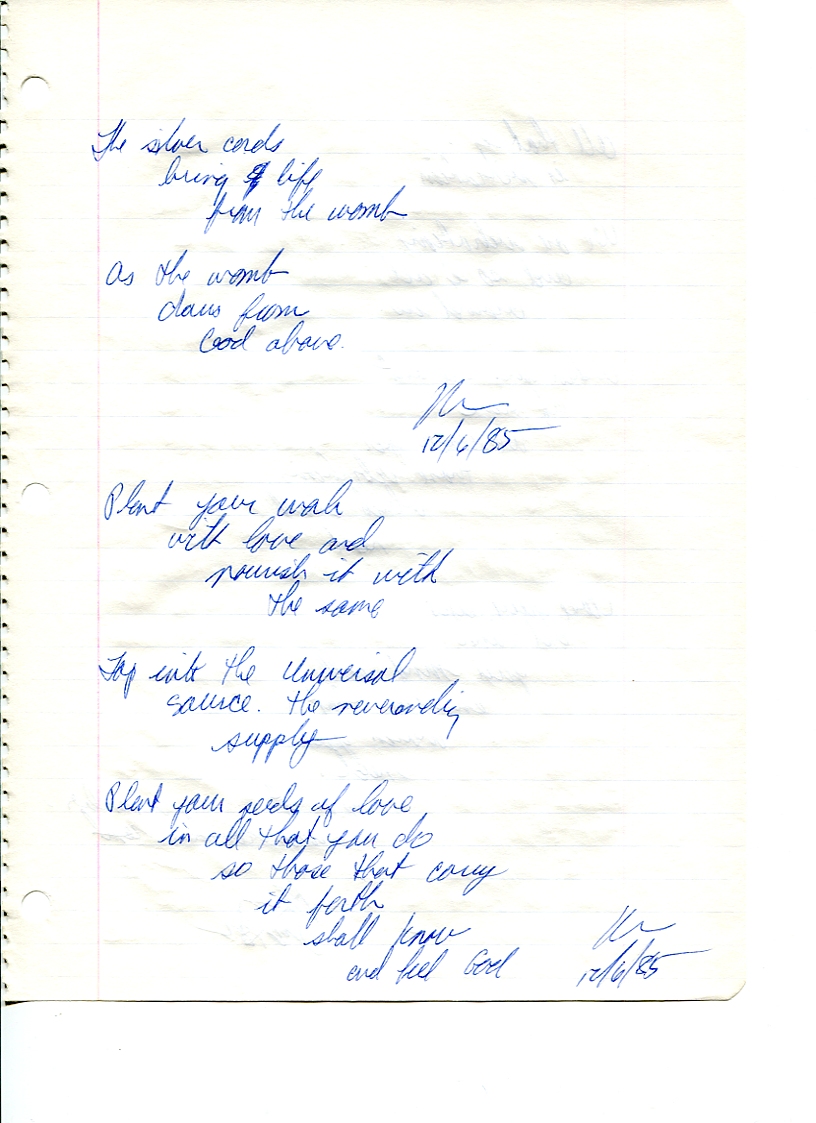 The silver cords
bring life
from the womb
As the womb
draws from
God above.
12/6/85
Plant your
with love and
nourish it with
the same
Tap into the Universal
source. the neverending
supply
Plant your seeds of love
in all that you do
so those that carry
it forth
shall know
and feel God
12/6/85